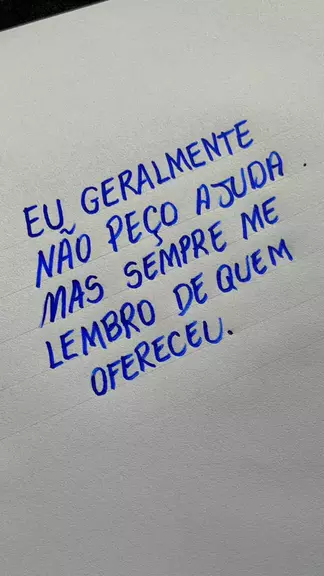 EU GERALMENTE
NÃO PEÇO AJUDA
MAS SEMPRE ME
LEMBRO DE QUEM
OFERECEU.